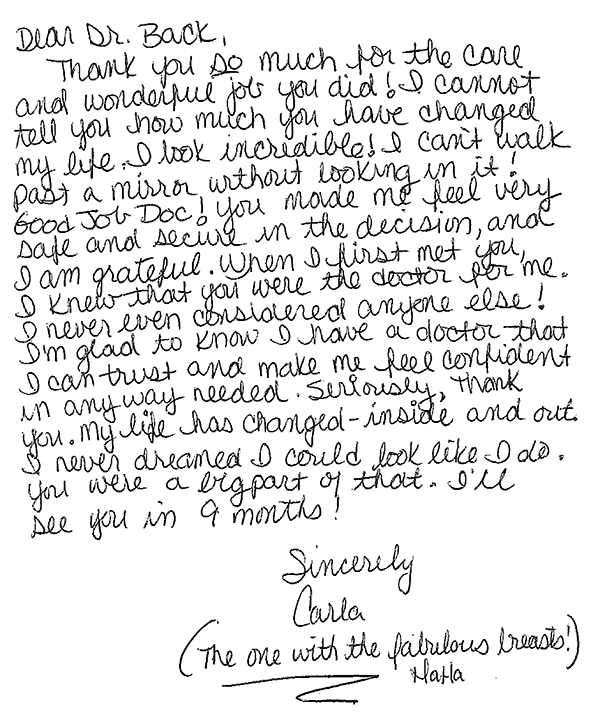 Dear Dr. Back,
Thank you so much for the care
and wonderful job you did! I cannot
tell you how much you have changed
my life. I look incredible! I can't walk
past a mirror without looking in it!
Good Job Doc! You made me feel very
safe and secure in the decision, and
I am grateful. When I first met you,
I knew that you were the doctor for me.
I never even considered anyone else!
I'm glad to know I have a doctor that
I can trust and make me feel confident
in anyway needed. Seriously, Thank
you. My life has changed-inside and out.
I never dreamed I could look like I do.
You were a big part of that. I'll
see you in 9 months!
Sincerely
Carla
(The one with the fabulous breasts!)
HaHa